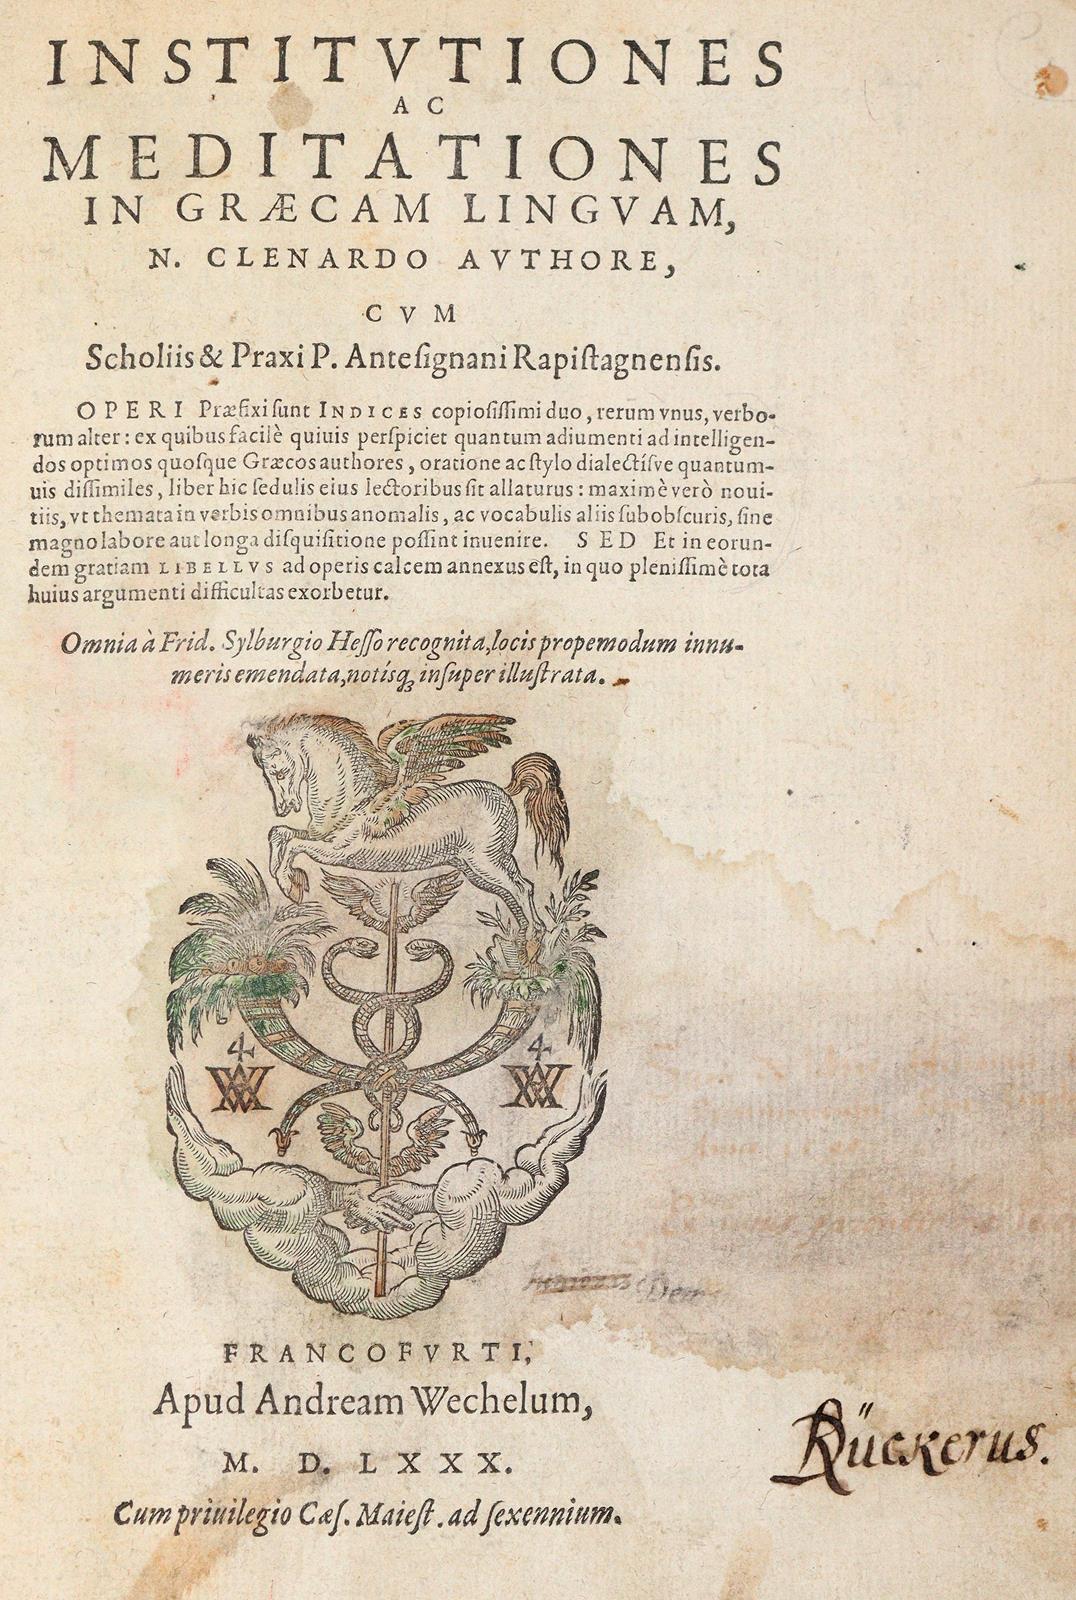 INSTITVTIONES
AC
MEDITATIONES
IN GRÆCAM LINGVAM,
N. CLENARDO AVTHORE,
CVM
Scholiis & Praxi P. Anteſignani Rapiſtagnenſis.
OPERI Præfixi ſunt INDICES copioſiſſimi duo, rerum vnus, verbo-
rum alter: ex quibus facilè quiuis perſpiciet quantum adiumenti ad intelligen-
dos optimos quoſque Græcos authores, oratione ac ſtylo dialectíſve quantum-
uis diſſimiles, liber hic ſedulis eius lectoribus ſit allaturus: maximè verò noui-
tiis, vt themata in verbis omnibus anomalis, ac vocabulis aliis ſubobſcuris, ſine
magno labore aut longa diſquiſitione poſſint inuenire. SED Et in eorun-
dem gratiam LIBELLVS ad operis calcem annexus eſt, in quo pleniſſimè tota
huius argumenti difficultas exorbetur.
Omnia à Frid. Sylburgio Heſſo recognita, locis propemodum innu-
meris emendata, notíſq; inſuper illuſtrata.
4 4
FRANCOFVRTI,
Apud Andream Wechelum,
Rückerus.
M. D. LXXX.
Cum priuilegio Cæſ. Maieſt. ad ſexennium.